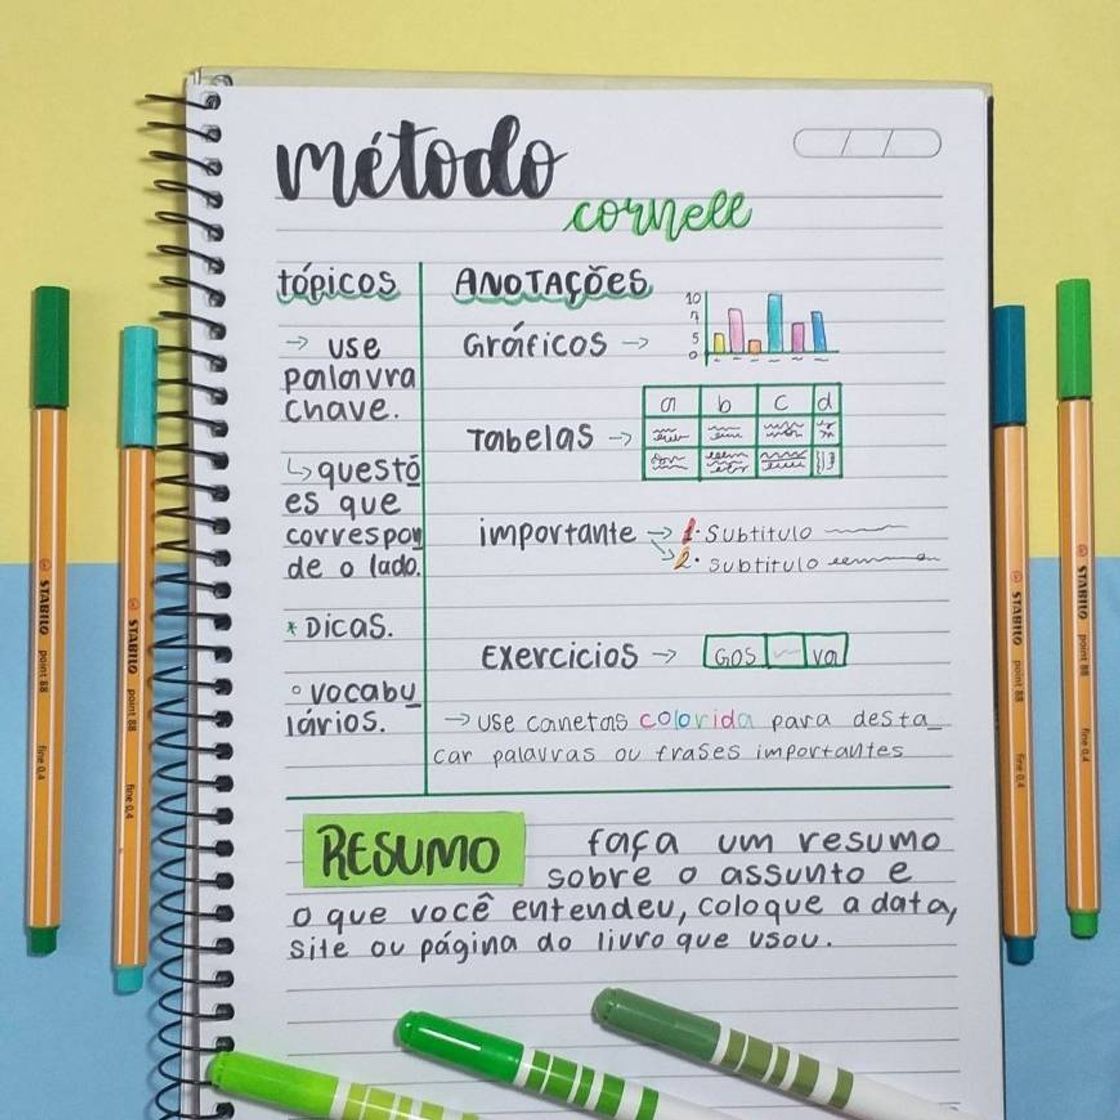 método
cornell
tópicos
→ use
palavra
chave.
↳ questõ
es que
correspon
de o lado.
* Dicas.
° vocabu
lários.
ANOTAÇÕES
Gráficos →
10
7
5
0
Tabelas →
a b c d
importante → 1. Subtitulo
2. subtitulo
Exercicios → GOS va
→ use canetas colorida para desta_
car palavras ou frases importantes
RESUMO faça um resumo
sobre o assunto e
o que você entendeu, coloque a data,
site ou página do livro que usou.
STABILO point 88 fine 0,4
STABILO point 88 fine 0,4
STABILO point 88 fine 0,4
STABILO point 88 fine 0,4